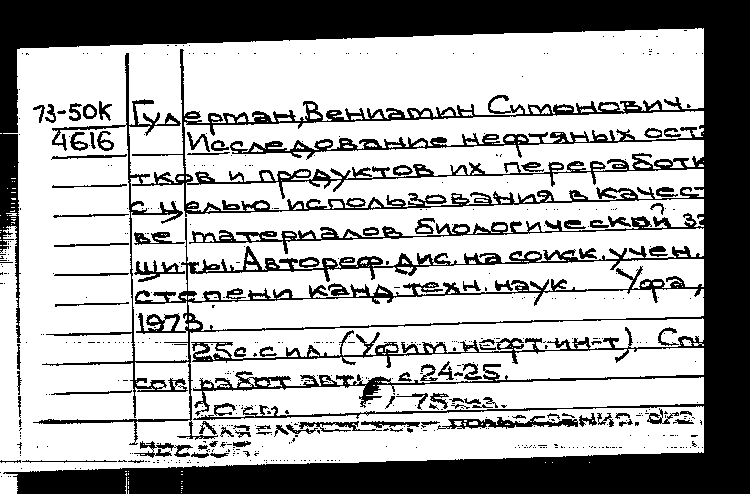 73-50К Гулерман, Вениамин Симонович.
4616 Исследование нефтяных оста
тков и продуктов их переработк
с целью использования в качест
ве материалов биологической за
щиты. Автореф. дис. на соиск. учен.
степени канд. техн. наук. Уфа,
1973.
25с. с ил. (Уфим. нефт. ин-т). Спи
сок работ авт.: с. 24-25.
20 см. 75 экз.
Для пользования.